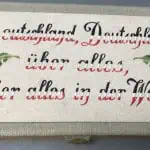 Deutschland, Deutschl
über alles,
ber alles in der We